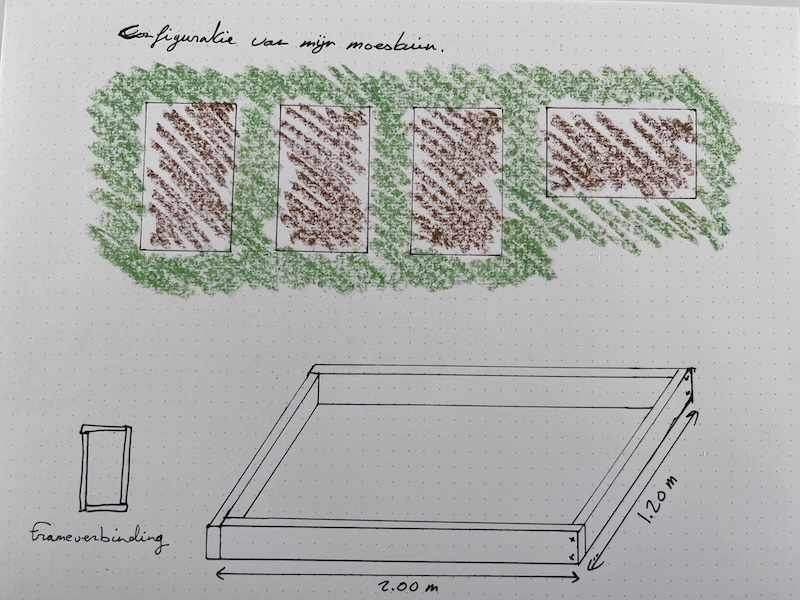 Configuratie van mijn moestuin.
Frameverbinding
1.20 m
2.00 m